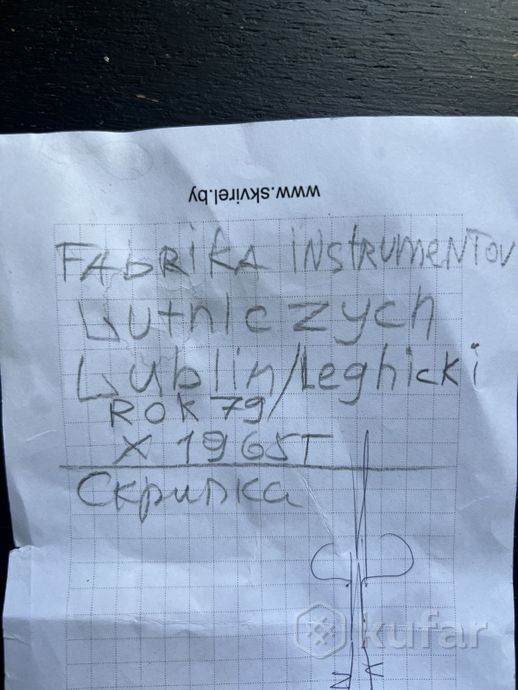 www.skvirel.by
FAbRikA iNstRumeNTov
Lutniczych
Lublin/Leghicki
ROK 79/
X 1965T
Скрипка
kufar
N K